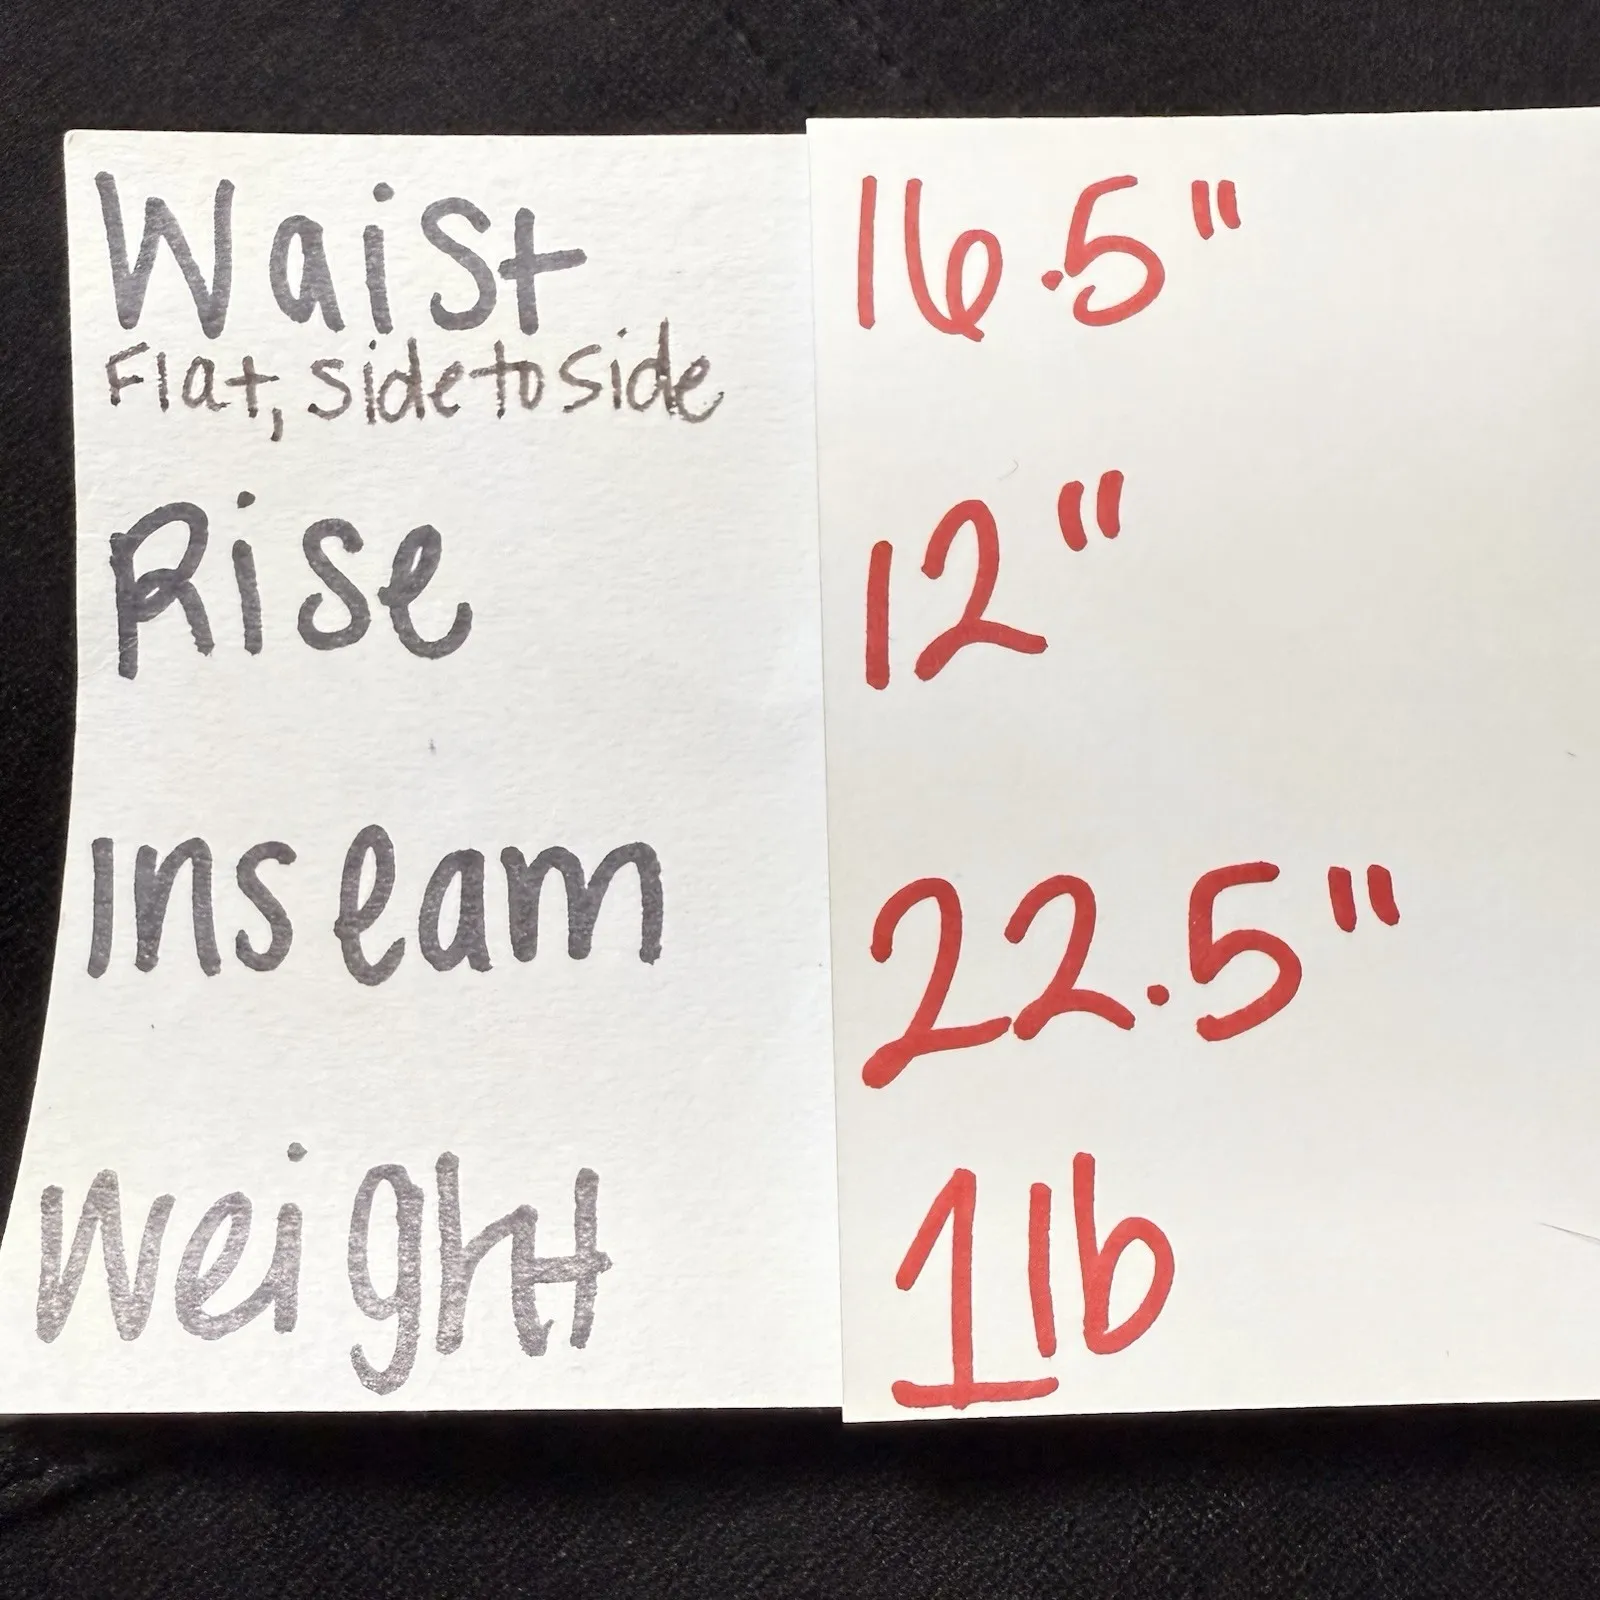 Waist 16.5"
Flat, side to side
Rise 12"
Inseam 22.5"
Weight 1 lb